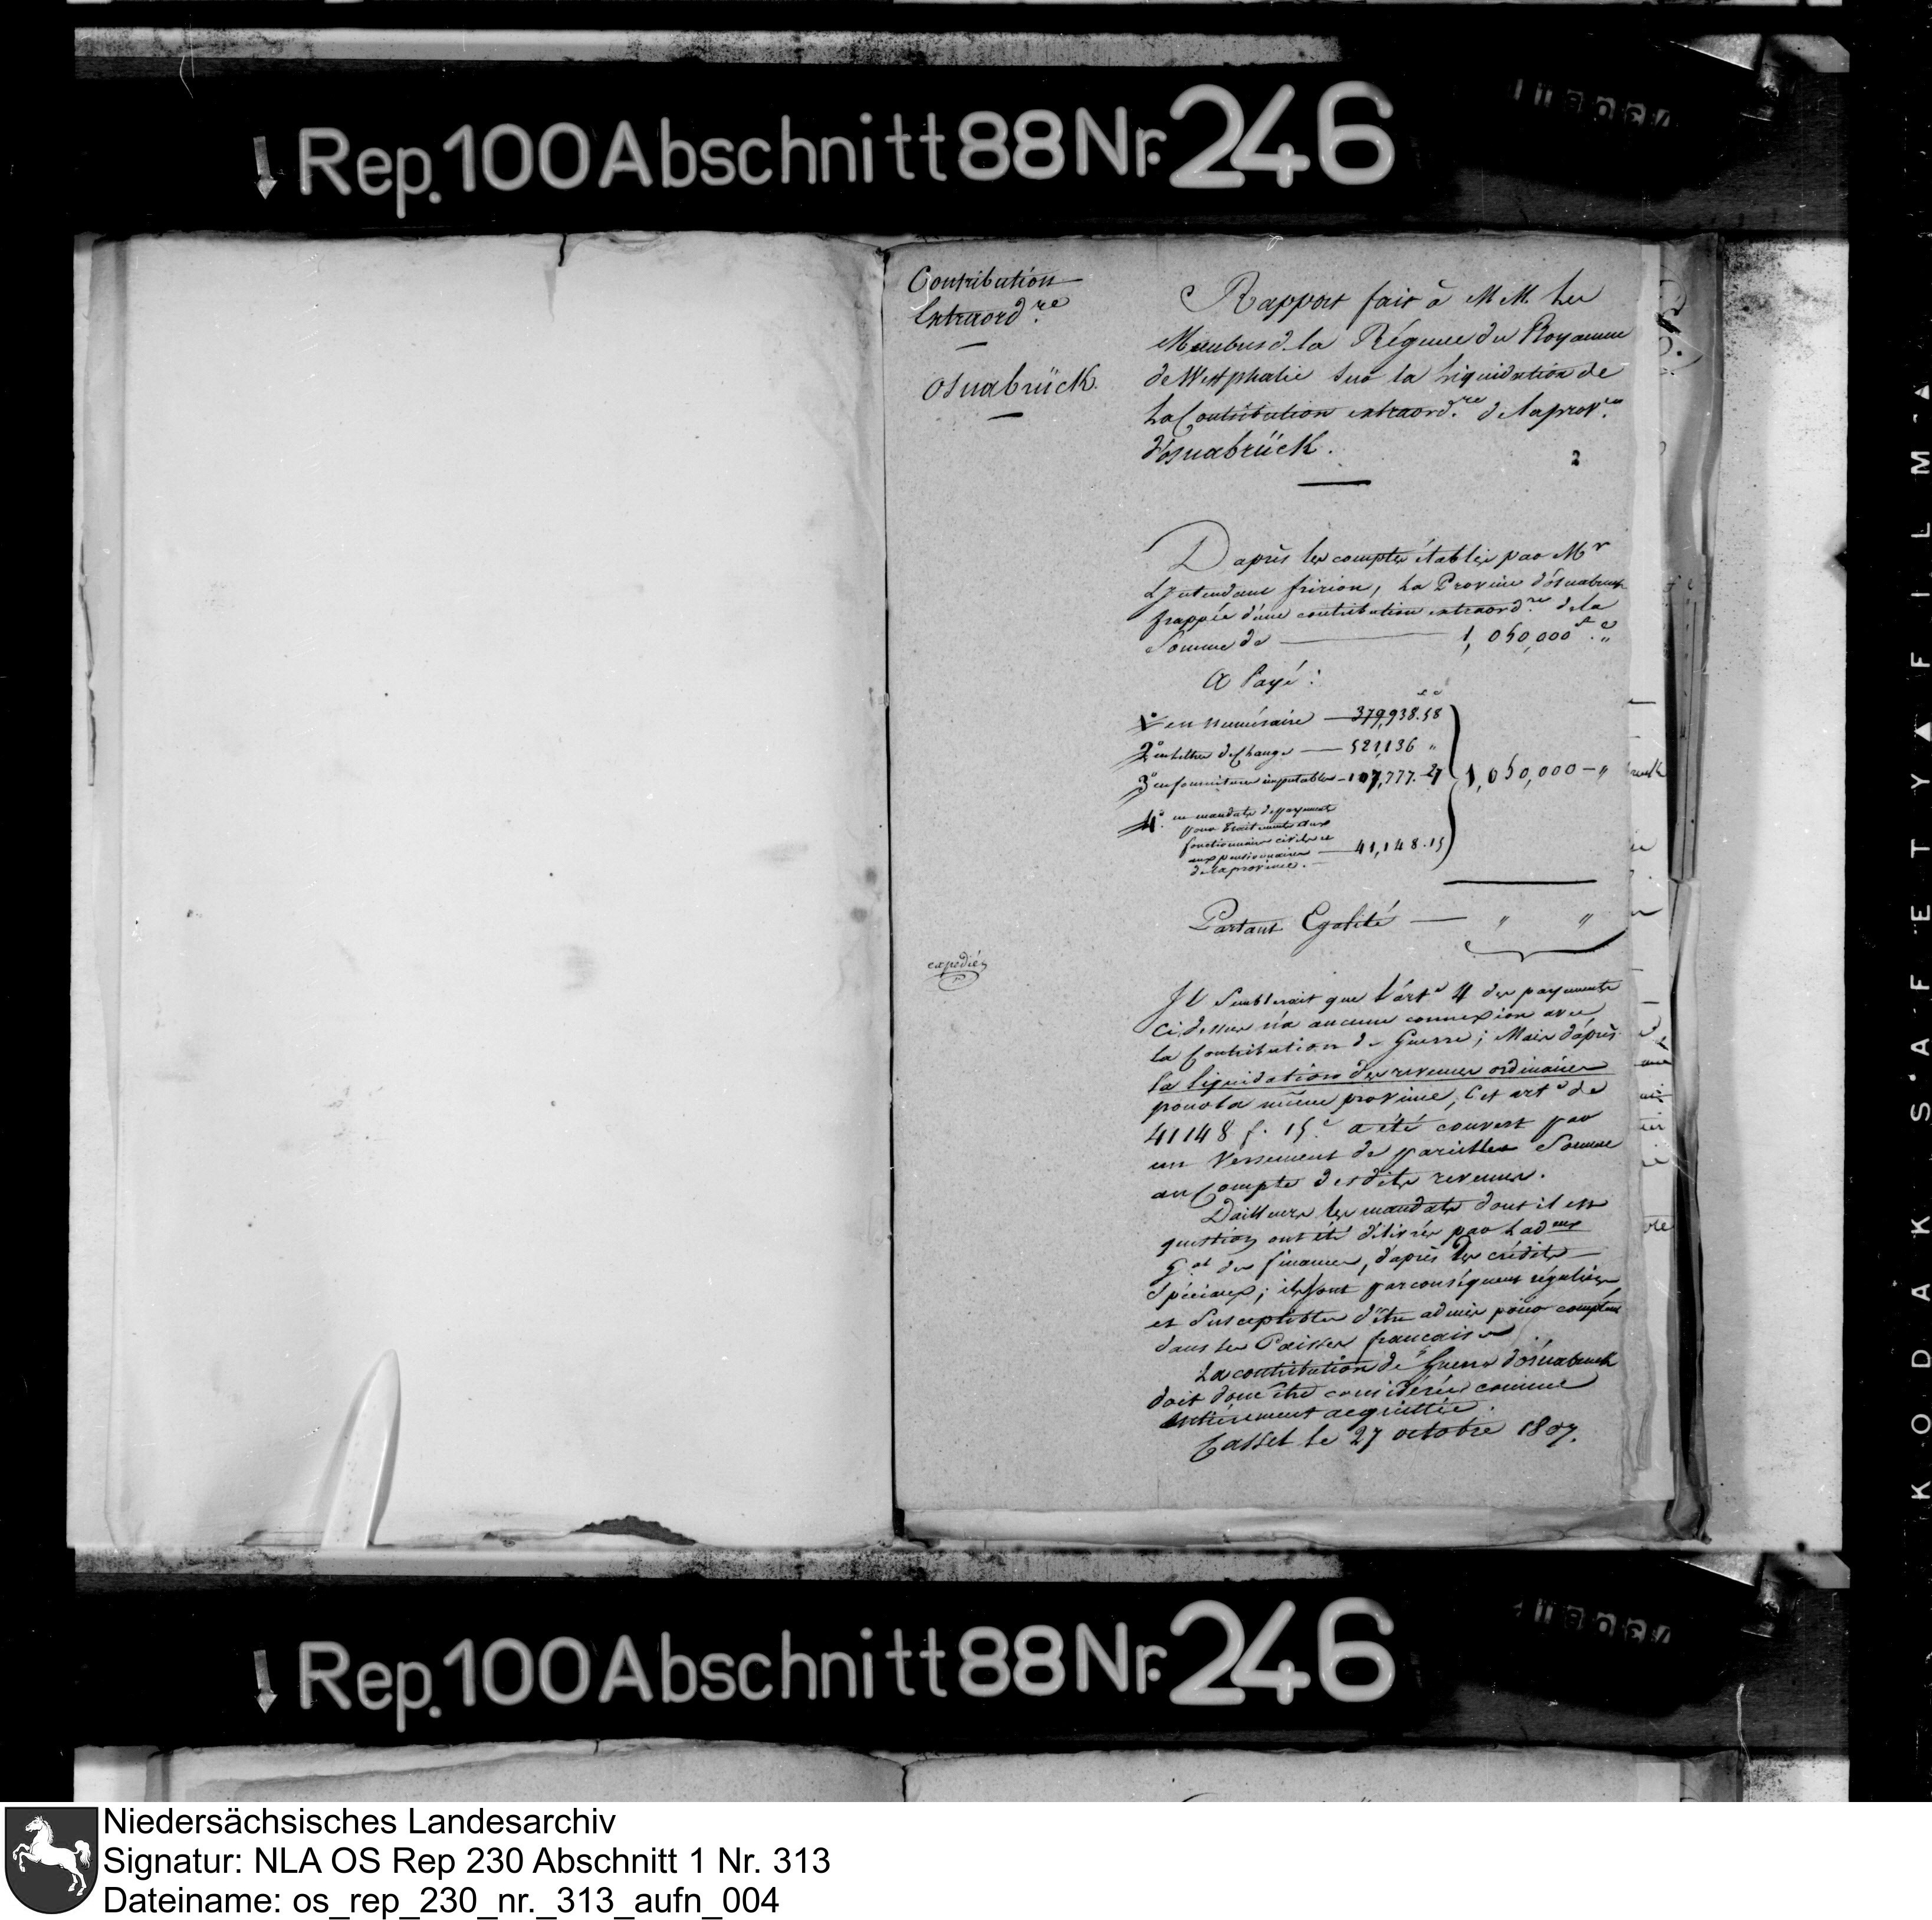 Rep. 100 Abschnitt 88 Nr. 246
Contribution
Extraord.re
Osnabrück.
Rapport fait à MM. Les
Membres de la Régence du Royaume
de Westphalie Sur la Liquidation de
La Contribution extraord.re de la prov.ce
d'osnabrück.
2
Daprès les comptes établis par Mr
L'Intendant fririon, La Province d'osnabruck
frappée d'une contribution extraord.re de la
Somme de — 1,050,000 f. c "
A Payé :
1° en numéraire — 379,938.58
2° en lettres de Change — 521,136 "
3° en fournitures imputables — 107,777.27
1,050,000 — "
4° en mandats de payement
pour traitements aux
fonctionnaires civils et
aux pensionnaires — 41,148.15
de la province.
Partant Egalité — " "
expédié
Il Semblerait que l'art.e 4 des payements
Ci dessus n'a aucune connexion avec
la Contribution de Guerre ; Mais d'après
la liquidation des revenus ordinaires
pour la même province, Cet art.e de
41148 f. 15.c a été couvert par
un Versement de pareille Somme
au Compte desdits revenus.
Dailleurs les mandats dont il est
question ont été délivrés par L'ad.eur
G.al des finances, d'après les crédits
Spéciaux ; ils sont par conséquent réguliers
et Susceptibles d'être admis pour comptant
dans les Caisses françaises
La contribution de Guerre d'osnabruck
doit donc être considérée comme
entièrement acquittée.
Cassel le 27 octobre 1807.
Rep. 100 Abschnitt 88 Nr. 246
KODAK SAFETY FILM
Niedersächsisches Landesarchiv
Signatur: NLA OS Rep 230 Abschnitt 1 Nr. 313
Dateiname: os_rep_230_nr._313_aufn_004